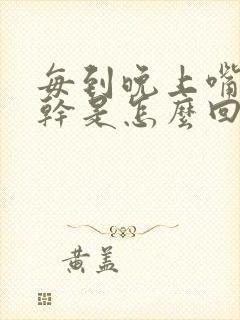 每到晚上嘴
幹是怎麼回
黄盖